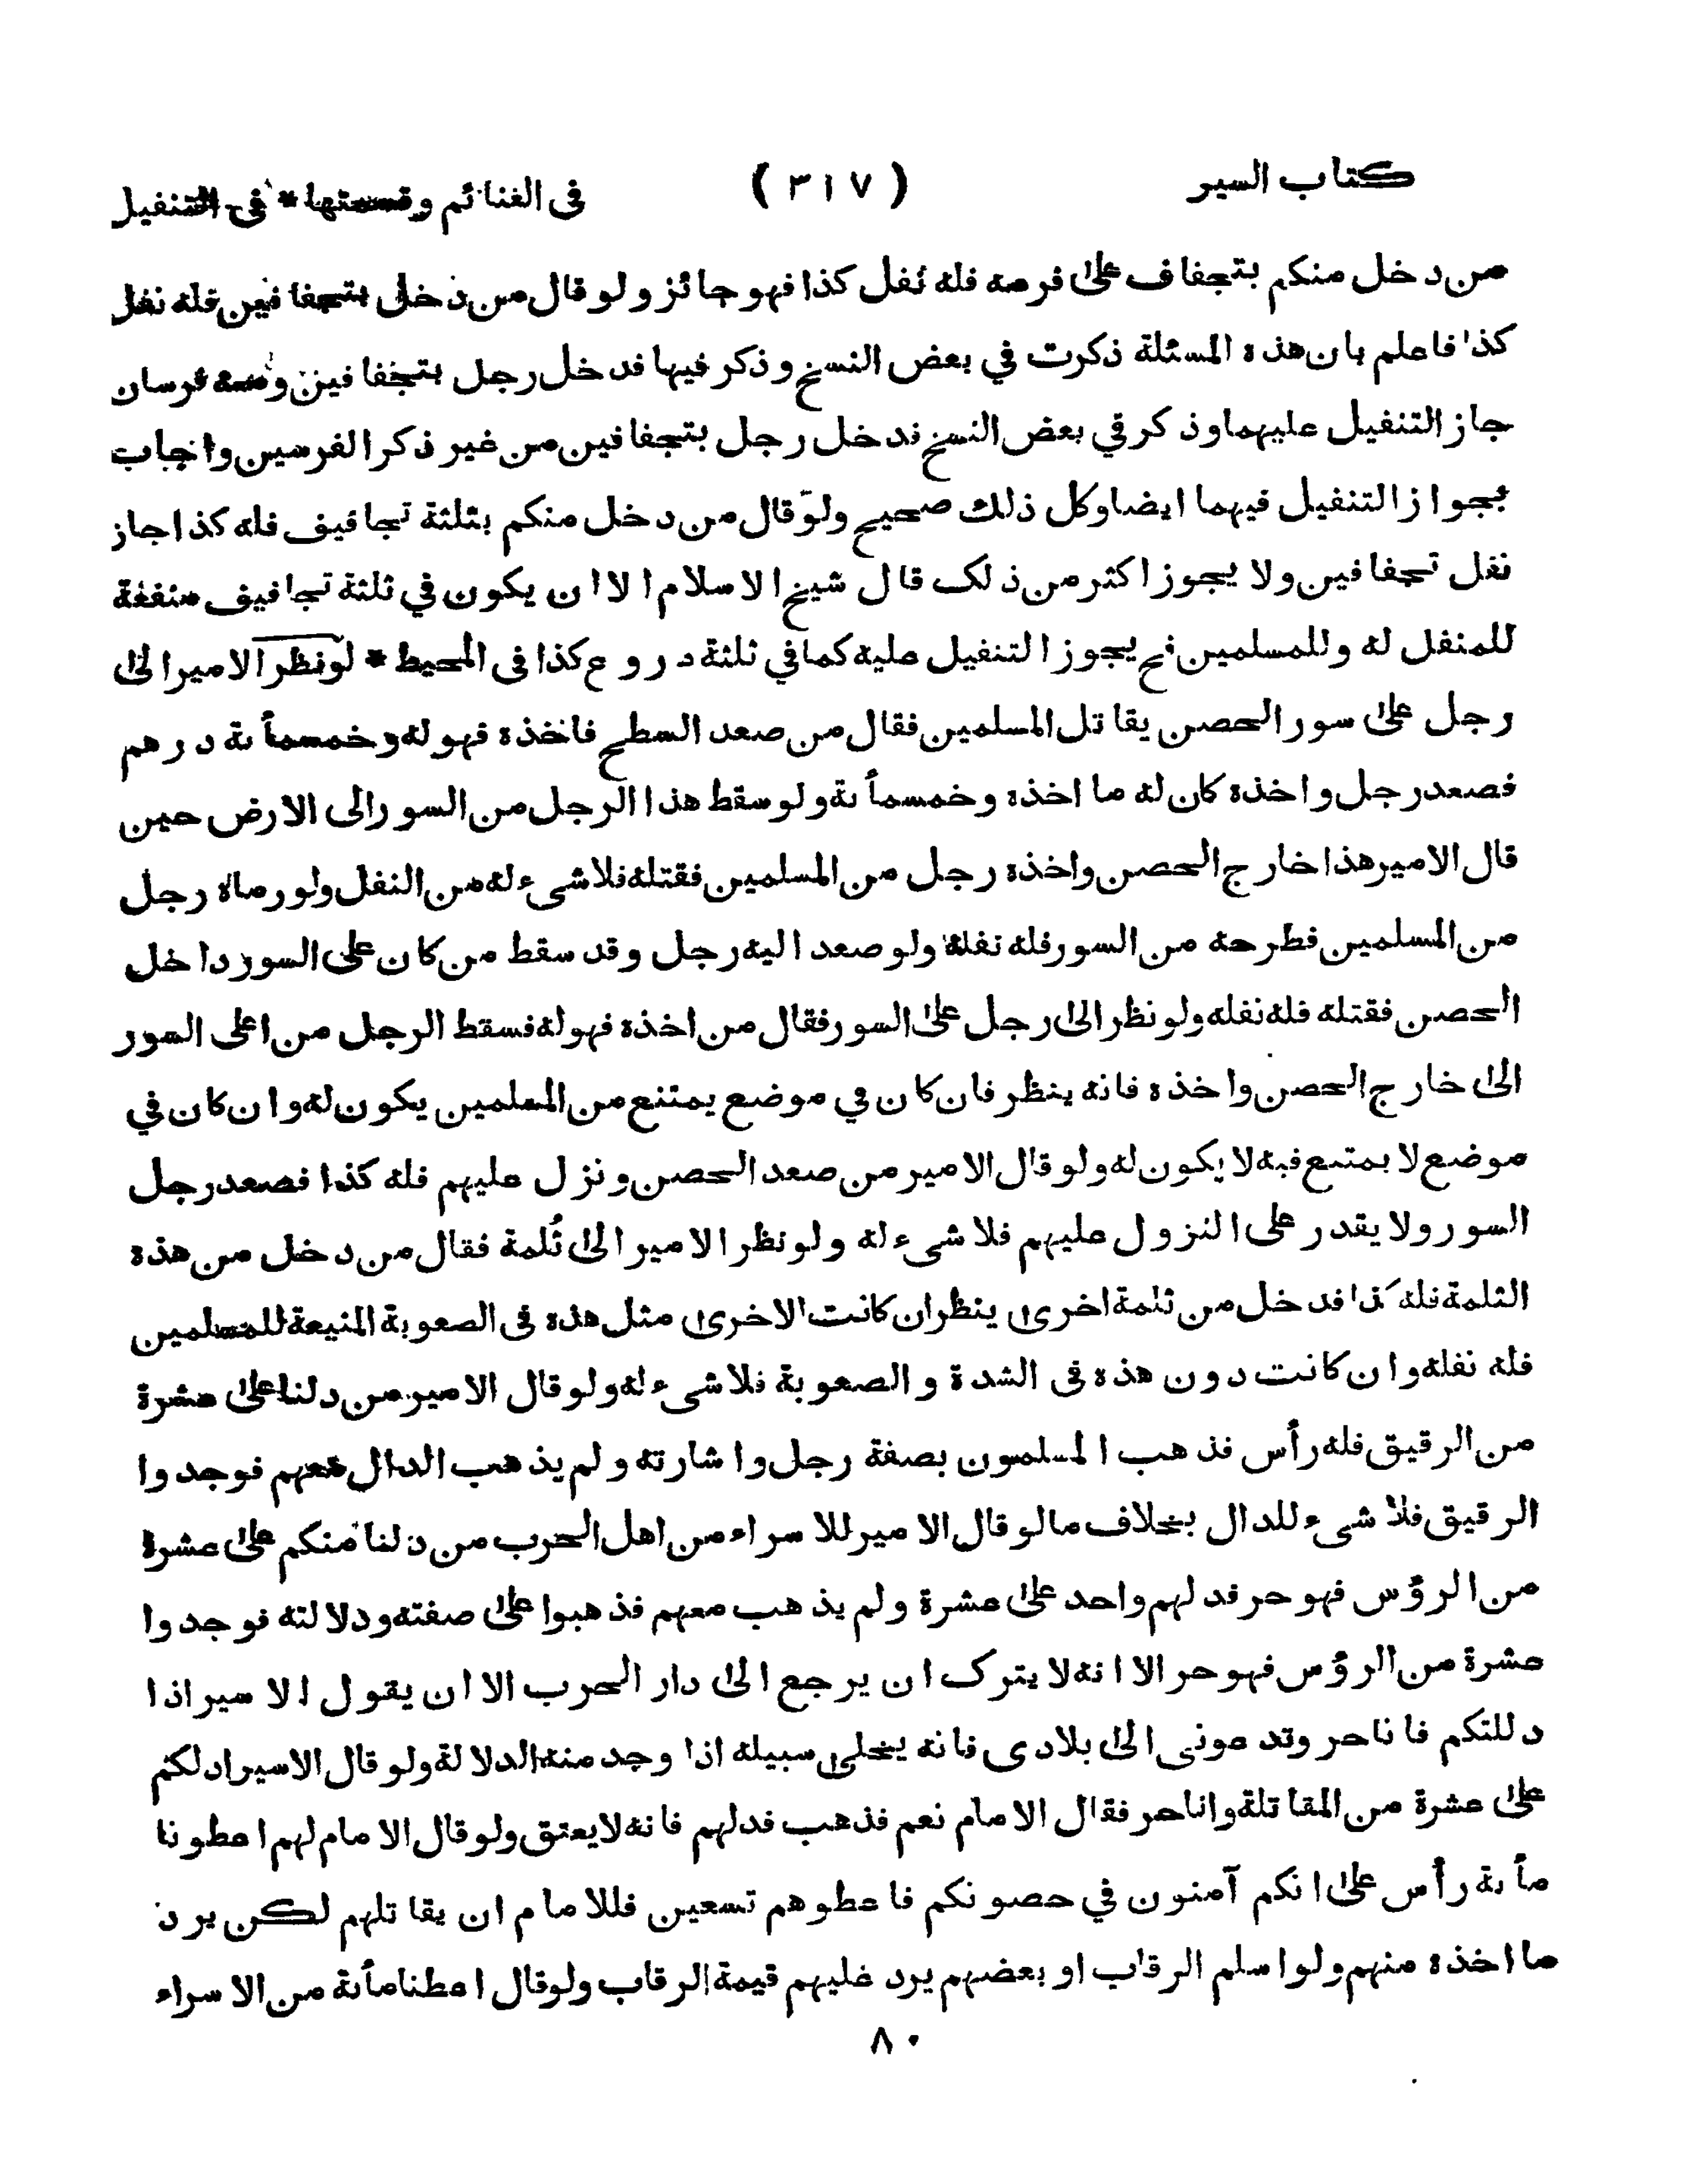 كتاب السير ( ٣١٧ ) فى الغنائم وقسمتها * فى التنفيل
من دخل منكم بتجفاف على فرسه فله نفل كذا فهو جائز ولو قال من دخل بتجفافين فله نفل
كذا فاعلم بان هذه المسئلة ذكرت في بعض النسخ وذكر فيها فدخل رجل بتجفافين ومعه فرسان
جاز التنفيل عليهما وذكر في بعض النسخ فدخل رجل بتجفافين من غير ذكر الفرسين واجاب
بجواز التنفيل فيهما ايضا وكل ذلك صحيح ولو قال من دخل منكم بثلثة تجافيف فله كذا جاز
نفل تجفافين ولا يجوز اكثر من ذلك قال شيخ الاسلام الا ان يكون في ثلثة تجافيف منفعة
للمنفل له وللمسلمين فح يجوز التنفيل عليه كما في ثلثة دروع كذا فى المحيط * لو نظر الامير الى
رجل على سور الحصن يقاتل المسلمين فقال من صعد السطح فاخذه فهو له وخمسمأئة درهم
فصعد رجل واخذه كان له ما اخذه وخمسمأئة ولو سقط هذا الرجل من السور الى الارض حين
قال الامير هذا خارج الحصن واخذه رجل من المسلمين فقتله فلا شىء له من النفل ولو رماه رجل
من المسلمين فطرحه من السور فله نفله ولو صعد اليه رجل وقد سقط من كان على السور داخل
الحصن فقتله فله نفله ولو نظر الى رجل على السور فقال من اخذه فهو له فسقط الرجل من اعلى السور
الى خارج الحصن واخذه فانه ينظر فان كان في موضع يمتنع من المسلمين يكون له وان كان في
موضع لا يمتنع فيه لا يكون له ولو قال الامير من صعد الحصن ونزل عليهم فله كذا فصعد رجل
السور ولا يقدر على النزول عليهم فلا شىء له ولو نظر الامير الى ثُلمة فقال من دخل من هذه
الثلمة فله كذا فدخل من ثلمة اخرى ينظر ان كانت الاخرى مثل هذه فى الصعوبة المنيعة للمسلمين
فله نفله وان كانت دون هذه فى الشدة والصعوبة فلا شىء له ولو قال الامير من دلنا على عشرة
من الرقيق فله رأس فذهب المسلمون بصفة رجل واشارته ولم يذهب الدال معهم فوجدوا
الرقيق فلا شىء للدال بخلاف ما لو قال الامير للاسراء من اهل الحرب من دلنا منكم على عشرة
من الرؤس فهو حر فدلهم واحد على عشرة ولم يذهب معهم فذهبوا على صفته ودلالته فوجدوا
عشرة من الرؤس فهو حر الا انه لا يترك ان يرجع الى دار الحرب الا ان يقول الاسير اذا
دللتكم فانا حر وتدعونى الى بلادى فانه يخلى سبيله اذا وجد منه الدلالة ولو قال الاسير ادلكم
على عشرة من المقاتلة وانا حر فقال الامام نعم فذهب فدلهم فانه لا يعتق ولو قال الامام لهم اعطونا
مأئة رأس على انكم آمنون في حصونكم فاعطوهم تسعين فللامام ان يقاتلهم لكن يرد
ما اخذه منهم ولو اسلم الرقاب او بعضهم يرد عليهم قيمة الرقاب ولو قال اعطنا مأئة من الاسراء
٨٠